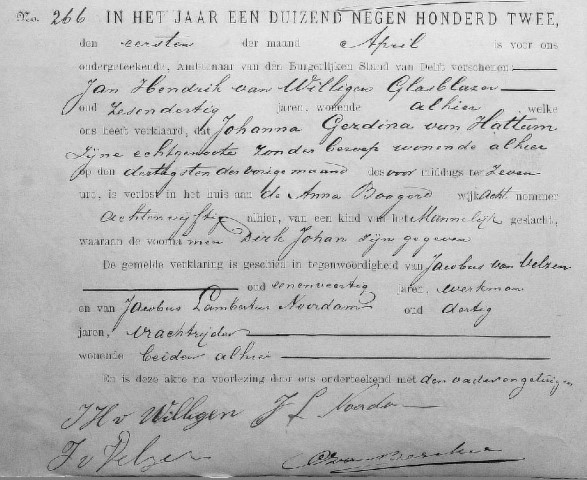 No. 266 IN HET JAAR EEN DUIZEND NEGEN HONDERD TWEE,
den eersten der maand April is voor ons
ondergeteekende, Ambtenaar van den Burgerlijken Stand van Delft verschenen:
Jan Hendrik van Willigen Glasblazer
oud Zesendertig jaren, wonende alhier welke
ons heeft verklaard, dat Johanna Gerdina van Hattum
zijne echtgenoote zonder beroep wonende alhier
op den dertigsten der vorige maand des voor middags te zeven
ure, is verlost in het huis aan de Anna Boogerd wijk acht nommer
achtenvijftig alhier, van een kind van het Mannelijk geslacht,
waaraan de voornamen Dirk Johan zijn gegeven
De gemelde verklaring is geschied in tegenwoordigheid van Jacobus van Velzen
oud eenenveertig jaren, werkman
en van Jacobus Lambertus Noordam oud dertig
jaren, vrachtrijder
wonende beiden alhier
En is deze akte na voorlezing door ons onderteekend met den vader en getuigen
JH v Willigen J L Noorda
J v Velzen